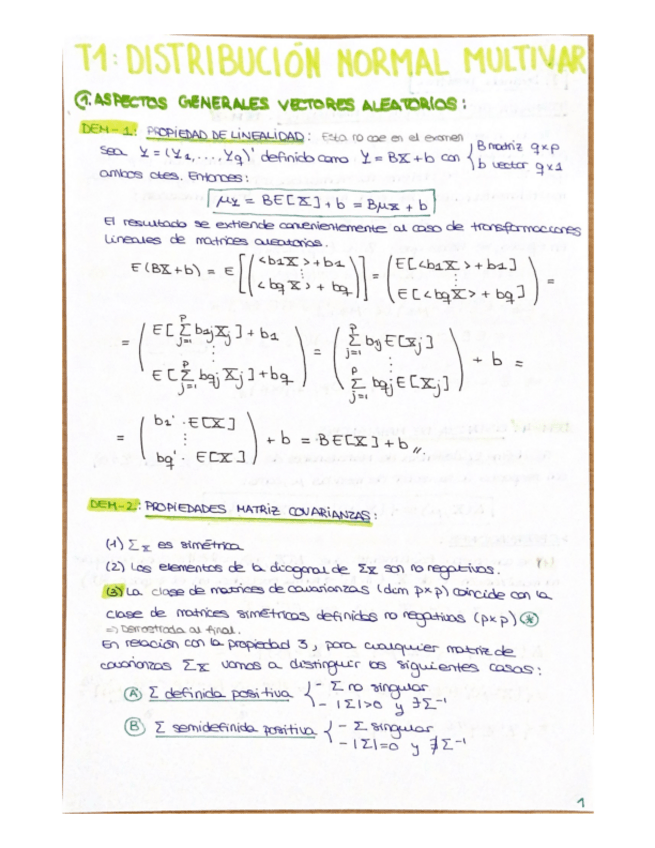 T1: DISTRIBUCIÓN NORMAL MULTIVAR
1. ASPECTOS GENERALES VECTORES ALEATORIOS:
DEM-1: PROPIEDAD DE LINEALIDAD: Esta no cae en el examen
Sea Y = (Y1, ..., Yq)' definido como Y = BX + b con { B matriz q×p
b vector q×1
ambos ctes. Entonces:
μY = BE[X] + b = BμX + b
El resultado se extiende convenientemente al caso de transformaciones
lineales de matrices aleatorias.
E(BX+b) = E[(<b1X> + b1 ⋮ <bqX> + bq)] = (E[<b1X> + b1] ⋮ E[<bqX> + bq]) =
= (E[∑j=1^p b1jXj] + b1 ⋮ E[∑j=1^p bqjXj] + bq) = (∑j=1^p bijE[Xj] ⋮ ∑j=1^p bqjE[Xj]) + b =
= (b1' · E[X] ⋮ bq' · E[X]) + b = BE[X] + b //
DEM-2: PROPIEDADES MATRIZ COVARIANZAS:
(1) ΣX es simétrica
(2) Los elementos de la diagonal de ΣX son no negativos.
(3) La clase de matrices de covarianzas (dim p×p) coincide con la
clase de matrices simétricas definidas no negativas (p×p) (*)
=> Demostrada al final.
En relación con la propiedad 3, para cualquier matriz de
covarianzas ΣX vamos a distinguir los siguientes casos:
(A) Σ definida positiva { - Σ no singular
- |Σ|>0 y ∃Σ^-1
(B) Σ semidefinida positiva { - Σ singular
- |Σ|=0 y ∄Σ^-1
1